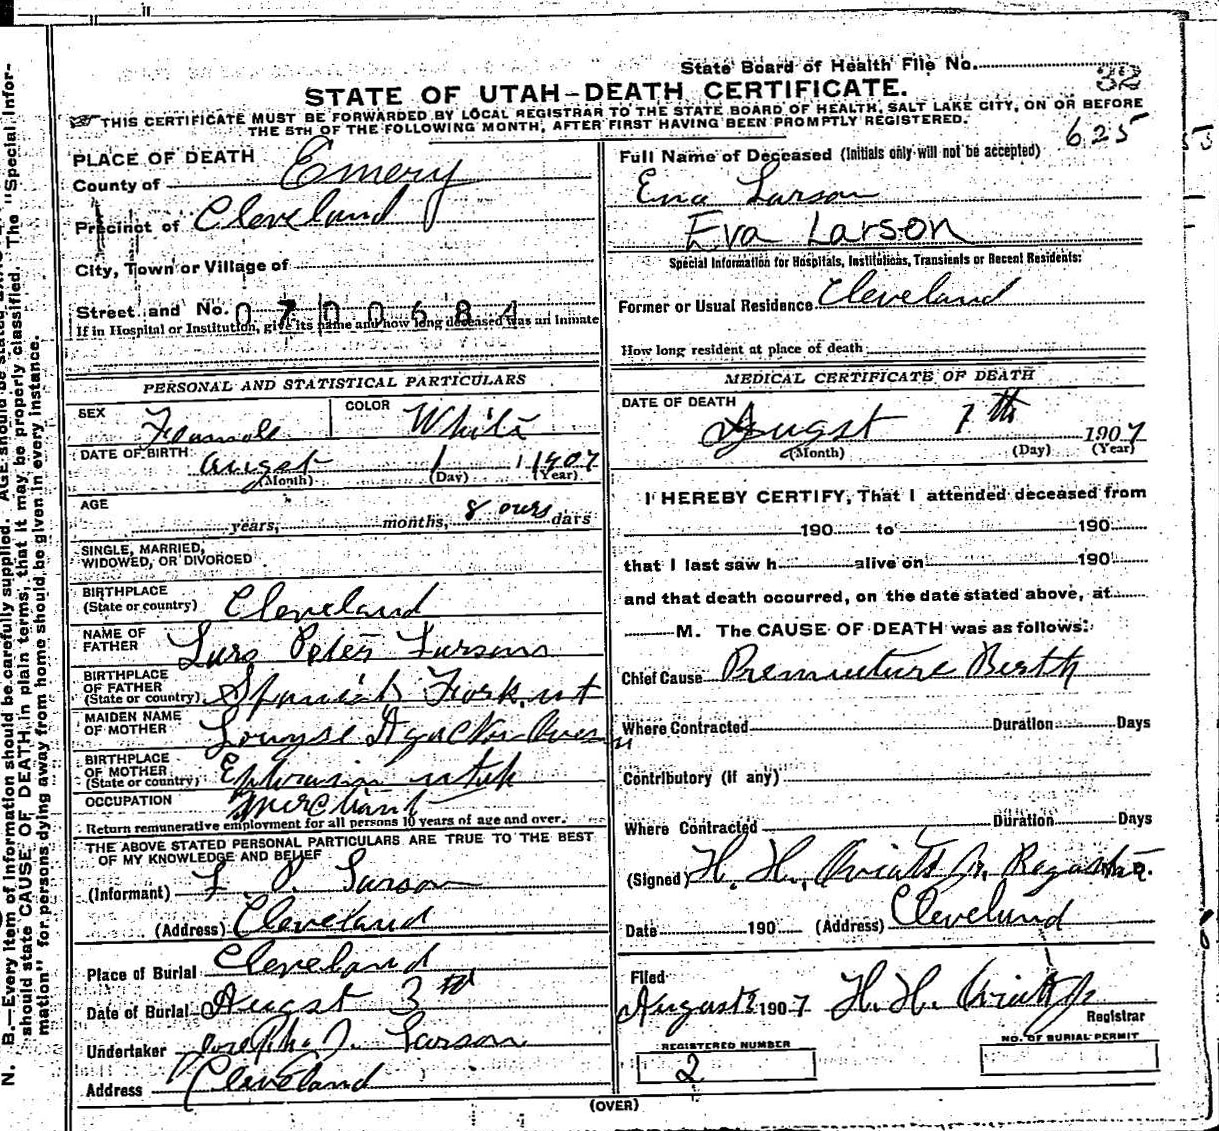 State Board of Health File No. 32
STATE OF UTAH—DEATH CERTIFICATE.
THIS CERTIFICATE MUST BE FORWARDED BY LOCAL REGISTRAR TO THE STATE BOARD OF HEALTH, SALT LAKE CITY, ON OR BEFORE
THE 5TH OF THE FOLLOWING MONTH, AFTER FIRST HAVING BEEN PROMPTLY REGISTERED.
625
PLACE OF DEATH
County of Emery
Precinct of Cleveland
City, Town or Village of
Street and No. 0700684
If in Hospital or Institution, give its name and how long deceased was an inmate
Full Name of Deceased (Initials only will not be accepted)
Eva Larson
Eva Larson
Special Information for Hospitals, Institutions, Transients or Recent Residents:
Former or Usual Residence Cleveland
How long resident at place of death
PERSONAL AND STATISTICAL PARTICULARS
SEX Female COLOR White
DATE OF BIRTH Augst 1 1907
(Month) (Day) (Year)
AGE years, months, 8 ours days
SINGLE, MARRIED,
WIDOWED, OR DIVORCED
BIRTHPLACE
(State or country) Cleveland
NAME OF
FATHER Lars Peter Larson
BIRTHPLACE
OF FATHER
(State or country) Spanish Fork. ut
MAIDEN NAME
OF MOTHER
BIRTHPLACE
OF MOTHER
(State or country) Ephraim utah
OCCUPATION Merchant
Return remunerative employment for all persons 10 years of age and over.
THE ABOVE STATED PERSONAL PARTICULARS ARE TRUE TO THE BEST
OF MY KNOWLEDGE AND BELIEF
(Informant) L. P. Larson
(Address) Cleveland
Place of Burial Cleveland
Date of Burial Augst 3rd
Undertaker Joseph J. Larson
Address Cleveland
MEDICAL CERTIFICATE OF DEATH
DATE OF DEATH
Augst 1th 1907
(Month) (Day) (Year)
I HEREBY CERTIFY, That I attended deceased from
190 to 190
that I last saw h alive on 190
and that death occurred, on the date stated above, at
M. The CAUSE OF DEATH was as follows:
Chief Cause Premature Berth
Where Contracted Duration Days
Contributory (if any)
Where Contracted Duration Days
(Signed) H. H. Jr.
Date 190 (Address) Cleveland
Filed
August 1907 H. H. Jr
Registrar
REGISTERED NUMBER
2
NO. OF BURIAL PERMIT
(OVER)
N. B.—Every item of information should be carefully supplied. AGE should be stated
should state CAUSE OF DEATH in plain terms, that it may be properly classified. The "Special Infor-
mation" for persons dying away from home should be given in every instance.